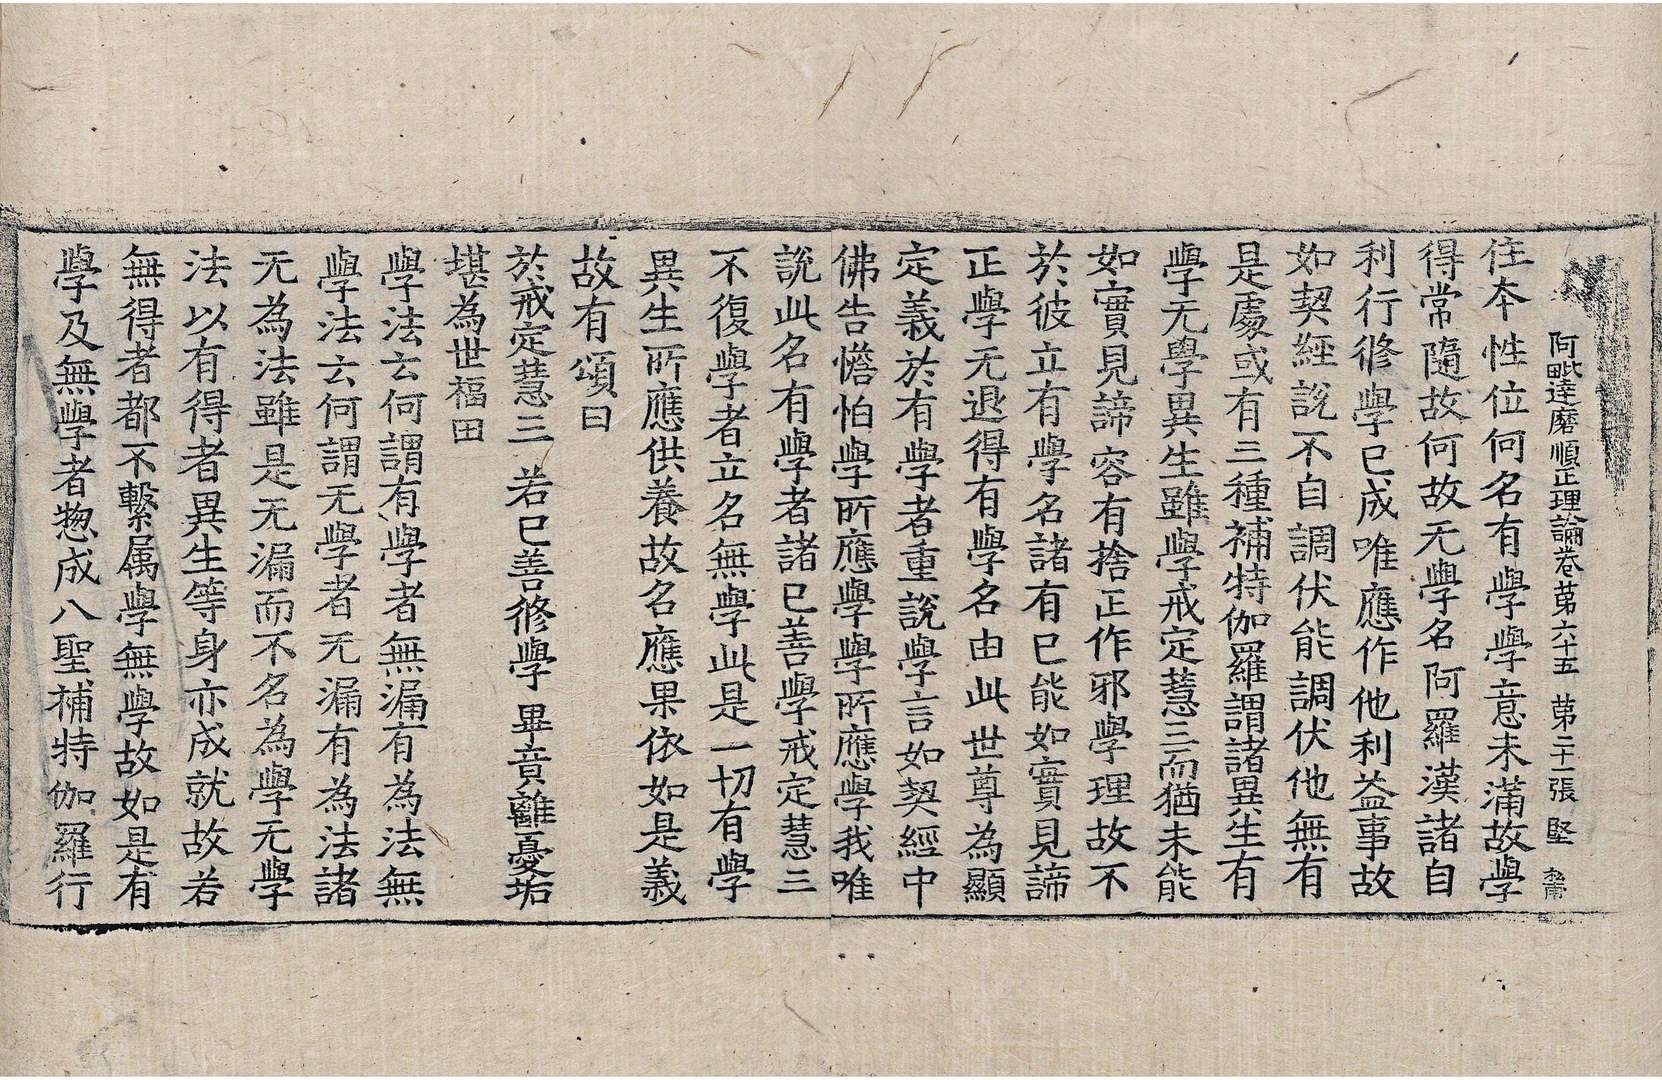 阿毗達磨順正理論卷苐六十五 苐二十張 堅
住本性位何名有學學意未滿故學
得常隨故何故无學名阿羅漢諸自
利行修學已成唯應作他利益事故
如契經說不自調伏能調伏他無有
是處或有三種補特伽羅謂諸異生有
學无學異生雖學戒定慧三而猶未能
如實見諦容有捨正作邪學理故不
於彼立有學名諸有已能如實見諦
正學无退得有學名由此世尊為顯
定義於有學者重說學言如契經中
佛告憺怕學所應學學所應學我唯
說此名有學者諸已善學戒定慧三
不復學者立名無學此是一切有學
異生所應供養故名應果依如是義
故有頌曰
於戒定慧三 若已善修學 畢竟離憂垢
堪為世福田
學法云何謂有學者無漏有為法無
學法云何謂无學者无漏有為法諸
无為法雖是无漏而不名為學无學
法以有得者異生等身亦成就故若
無得者都不繫属學無學故如是有
學及無學者惣成八聖補特伽羅行